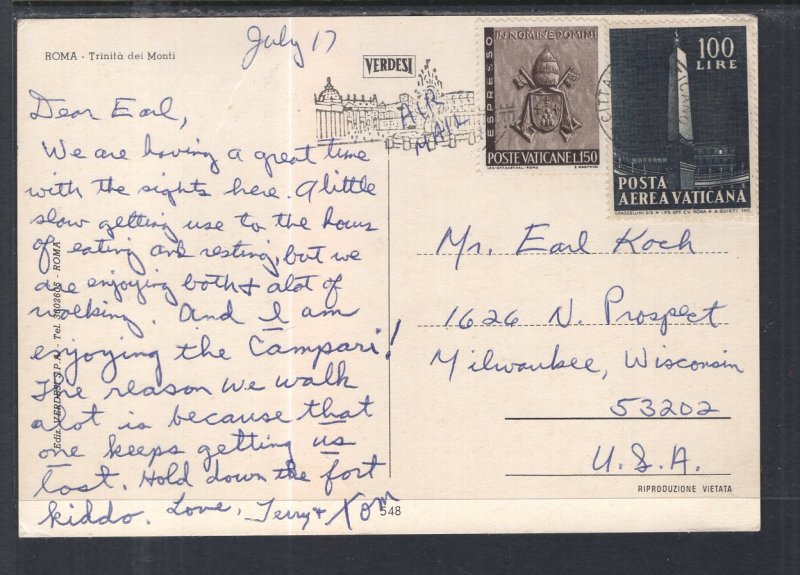 ROMA - Trinità dei Monti
July 17
VERDESI
AIR
MAIL
ESPRESSO
IN NOMINE DOMINI
POSTE VATICANE L.150
100
LIRE
POSTA
AEREA VATICANA
Dear Earl,
We are having a great time
with the sights here. A little
slow getting use to the hours
of eating and resting, but we
are enjoying both & alot of
walking. And I am
enjoying the Campari!
The reason we walk
alot is because that
one keeps getting us
lost. Hold down the fort
kiddo. Love, Terry & Tom
Mr. Earl Koch
1626 N. Prospect
Milwaukee, Wisconsin
53202
U.S.A.
RIPRODUZIONE VIETATA
548
Ediz. VERDESI S.P.A. - Tel. 3602605 - ROMA